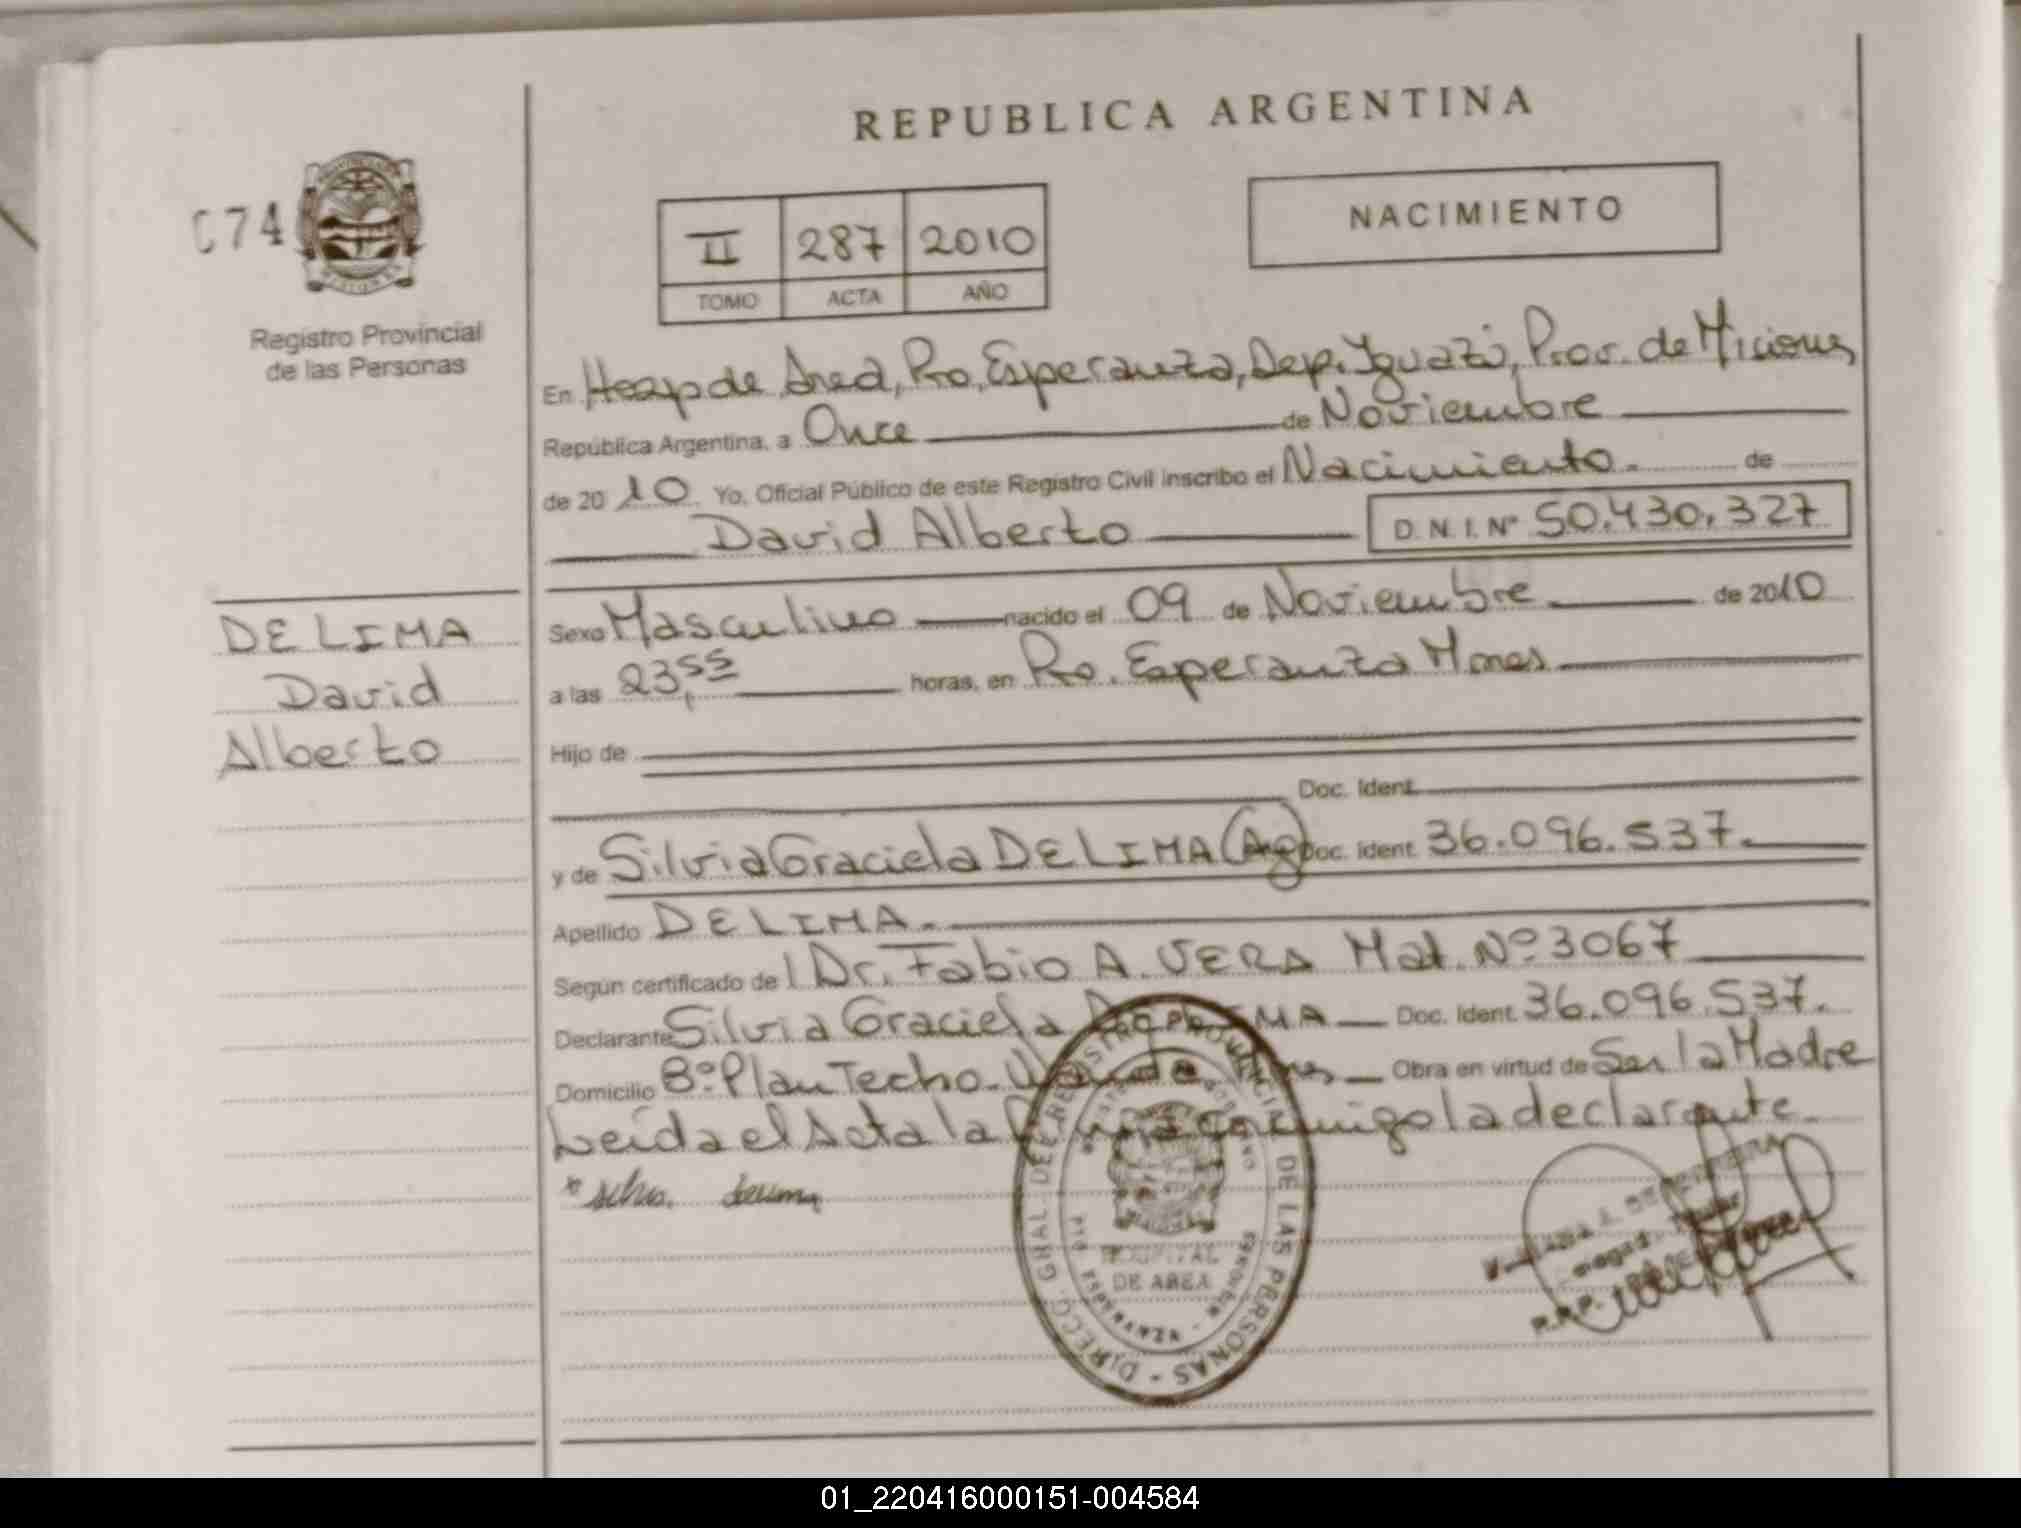 REPUBLICA ARGENTINA
C74
II 287 2010
TOMO ACTA AÑO
NACIMIENTO
Registro Provincial
de las Personas
En Hosp de Area, Pto. Esperanza, Dep. Iguazú, Prov. de Misiones
República Argentina, a Once de Noviembre
de 2010 Yo, Oficial Público de este Registro Civil inscribo el Nacimiento. de
David Alberto D. N. I. Nº 50.430.327
DE LIMA
David
Alberto
Sexo Masculino nacido el 09 de Noviembre de 2010
a las 23,55 horas, en Pto. Esperanza Mnes
Hijo de
Doc. Ident.
y de Silvia Graciela DE LIMA (Arg) Doc. Ident. 36.096.537.
Apellido DE LIMA.
Según certificado de l Dr. Fabio A. VERA Mat. Nº 3067
Declarante Silvia Graciela DE LIMA Doc. Ident. 36.096.537.
Domicilio Bº Plan Techo. Wanda Mnes Obra en virtud de Ser la Madre
Leída el Acta la firma conmigo la declarante.
DIRECC. GRAL. DE REGISTRO PROVINCIAL DE LAS PERSONAS
HOSPITAL
DE AREA
01_220416000151-004584